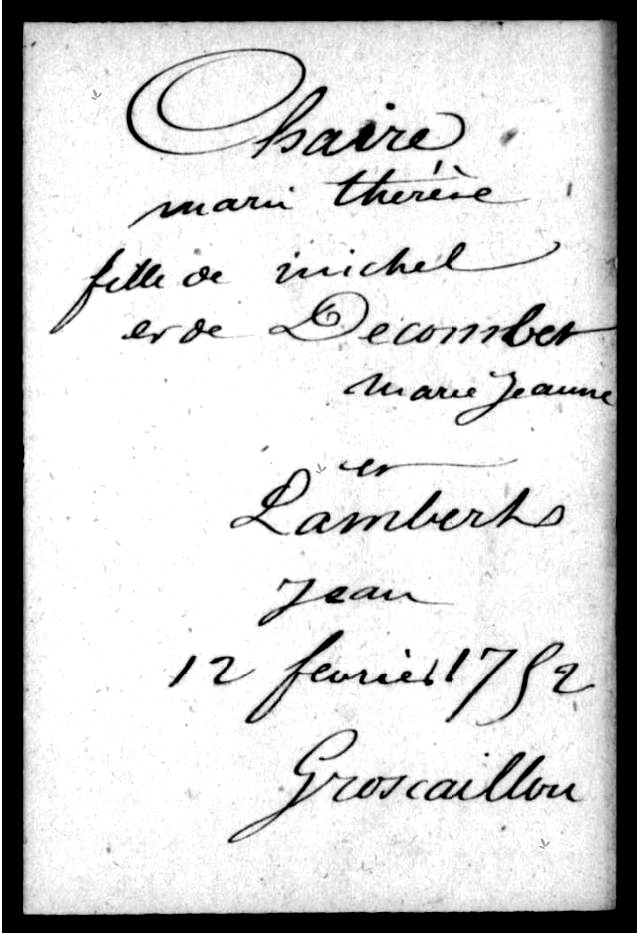 Chaire
marie thérèse
fille de michel
et de Decombes
marie Jeanne
et
Lamberts
Jean
12 fevrier 1752
Groscaillou